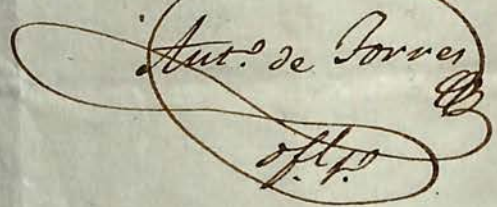 Ant.º de Torres